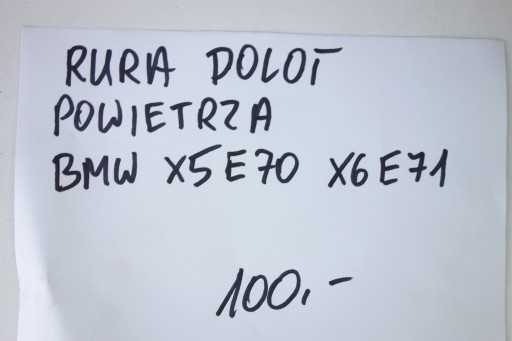 RURA DOLOT
POWIETRZA
BMW X5 E70 X6 E71
100,-